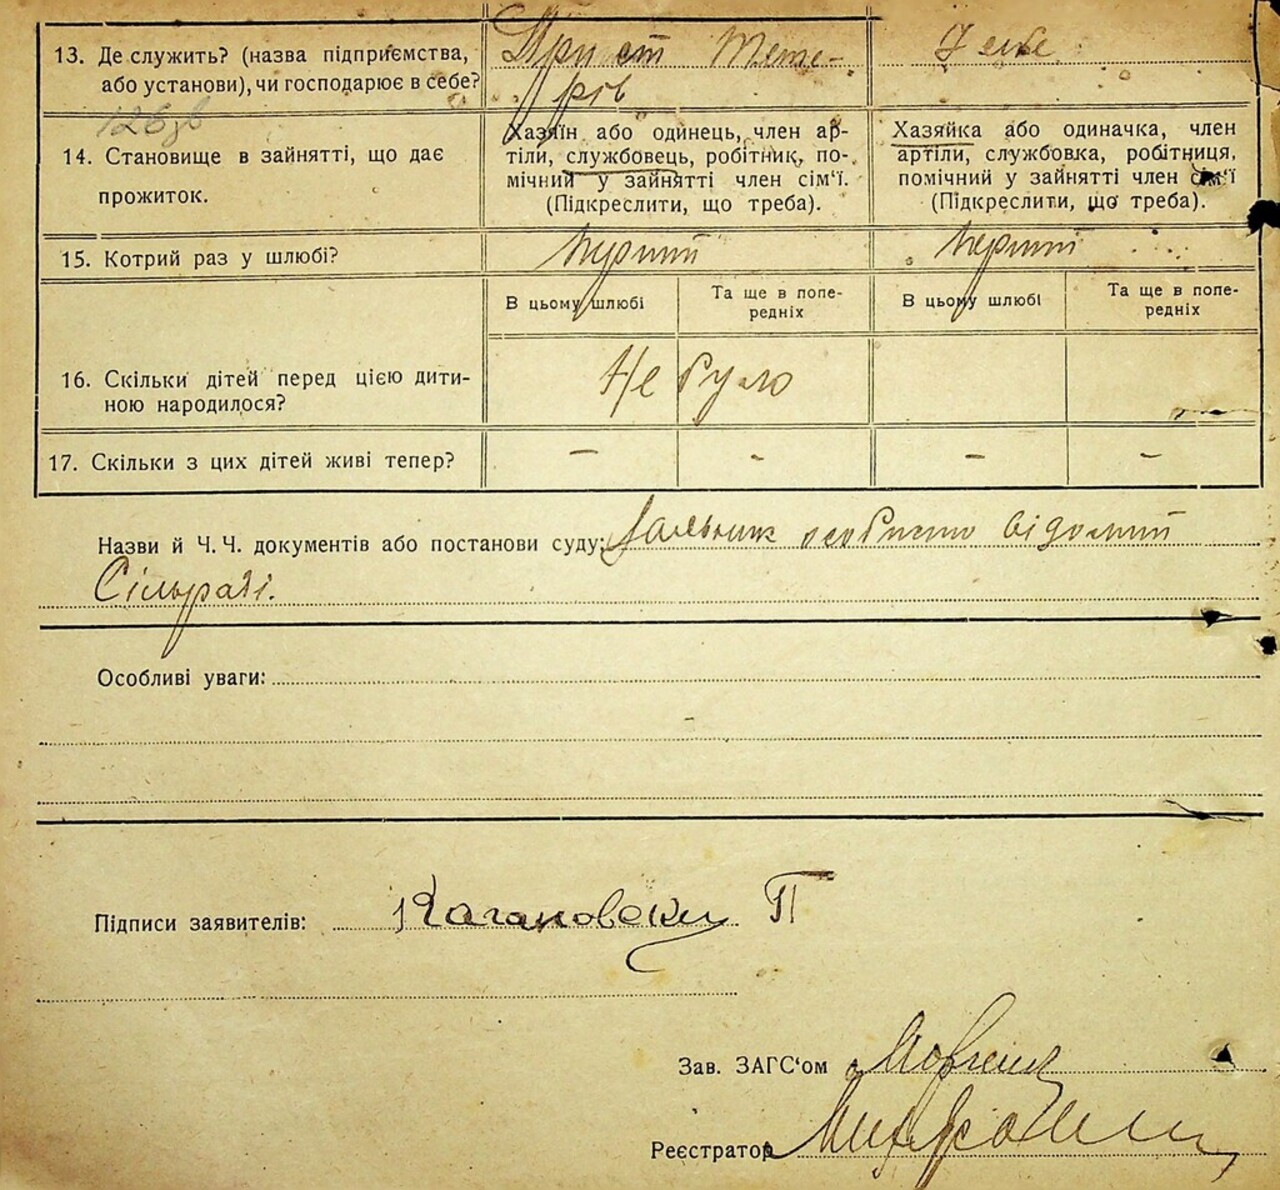 13. Де служить? (назва підприємства,
або установи), чи господарює в себе?
При ст Тете-
рів
У себе
14. Становище в зайнятті, що дає
прожиток.
Хазяїн або одинець, член ар-
тіли, службовець, робітник, по-
мічний у зайнятті член сім'ї.
(Підкреслити, що треба).
Хазяйка або одиначка, член
артіли, службовка, робітниця,
помічний у зайнятті член сім'ї
(Підкреслити, що треба).
15. Котрий раз у шлюбі?
перший
перший
В цьому шлюбі
Та ще в попе-
редніх
В цьому шлюбі
Та ще в попе-
редніх
16. Скільки дітей перед цією дити-
ною народилося?
Не було
17. Скільки з цих дітей живі тепер?
– - – –
Назви й Ч. Ч. документів або постанови суду: особисто відомий
Сільраді.
Особливі уваги:
Підписи заявителів: Кагановский П
Зав. ЗАГС'ом
Реєстратор